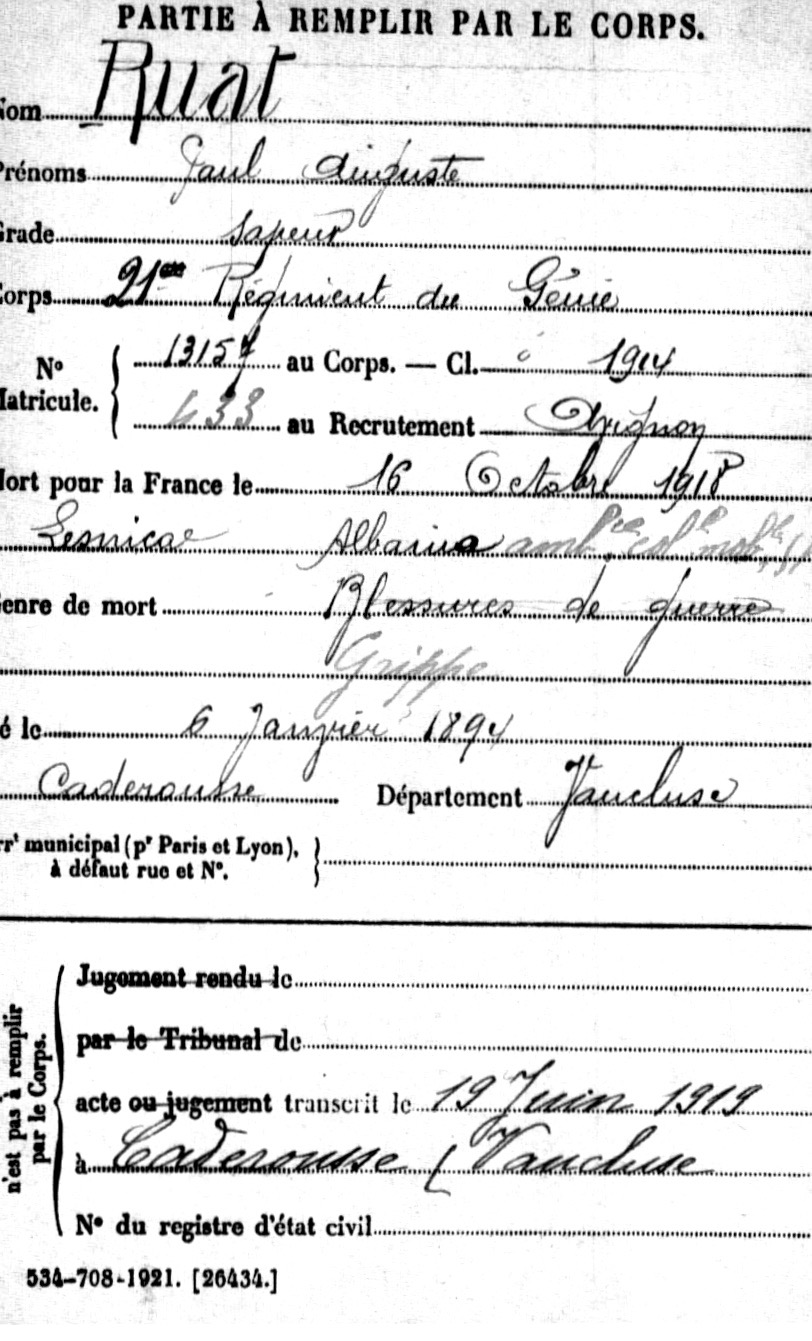 PARTIE À REMPLIR PAR LE CORPS.
Nom Ruat
Prénoms Paul Auguste
Grade Sapeur
Corps 21me Régiment du Génie
No Matricule. { 13157 au Corps. — Cl. 1914
633 au Recrutement Avignon
Mort pour la France le 16 Octobre 1918
Lesnica Albania ambce colle mobe
Genre de mort Blessures de guerre
Grippe
Né le 6 Janvier 1894
Caderousse Département Vaucluse
Arrt municipal (pr Paris et Lyon),
à défaut rue et No.
Jugement rendu le
par le Tribunal de
acte ou jugement transcrit le 19 Juin 1919
à Caderousse (Vaucluse
No du registre d'état civil
n'est pas à remplir
par le Corps.
534-708-1921. [26434.]